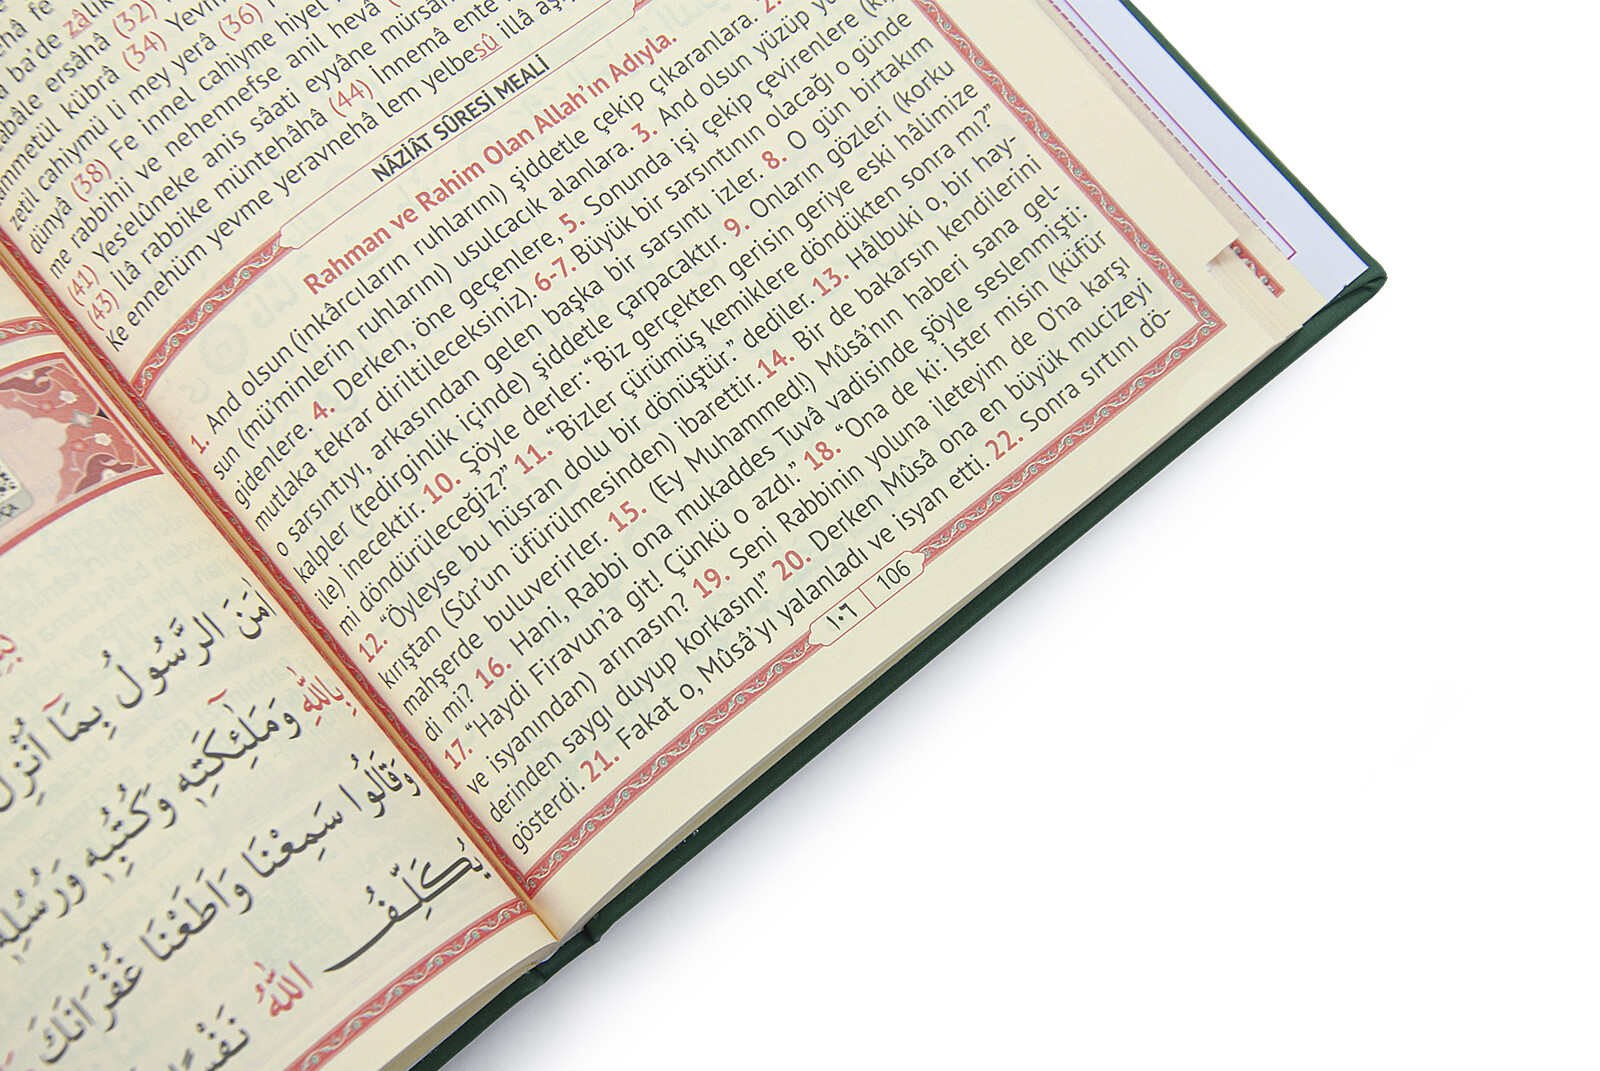 nâ fe
ba'de zâlik
bâle ersâhâ (32)
mmetül kübrâ (34) Yevm
zetil cahiymü li mey yerâ (36)
dünyâ (38) Fe innel cahiyme hiyel
me rabbihii ve nehennefse anil hevâ
(41) Yes'elûneke anis sâati eyyâne mürsâ
(43) İlâ rabbike müntehâhâ (44) İnnemâ ente
Ke ennehüm yevme yeravnehâ lem yelbesû illâ aşi
NÂZİÂT SÛRESİ MEALİ
Rahman ve Rahim Olan Allah'ın Adıyla.
1. And olsun (inkârcıların ruhlarını) şiddetle çekip çıkaranlara. 2.
sun (mü'minlerin ruhlarını) usulcacık alanlara. 3. And olsun yüzüp
gidenlere. 4. Derken, öne geçenlere, 5. Sonunda işi çekip çevirenlere (ki,
mutlaka tekrar diriltileceksiniz). 6-7. Büyük bir sarsıntının olacağı o günde
o sarsıntıyı, arkasından gelen başka bir sarsıntı izler. 8. O gün birtakım
kalpler (tedirginlik içinde) şiddetle çarpacaktır. 9. Onların gözleri (korku
ile) inecektir. 10. Şöyle derler: "Biz gerçekten gerisin geriye eski hâlimize
mi döndürüleceğiz?" 11. "Bizler çürümüş kemiklere döndükten sonra mı?"
12. "Öyleyse bu hüsran dolu bir dönüştür." dediler. 13. Hâlbuki o, bir hay-
kırıştan (Sûr'un üfürülmesinden) ibarettir. 14. Bir de bakarsın kendilerini
mahşerde buluverirler. 15. (Ey Muhammed!) Mûsâ'nın haberi sana gel-
di mi? 16. Hani, Rabbi ona mukaddes Tuvâ vadisinde şöyle seslenmişti:
17. "Haydi Firavun'a git! Çünkü o azdı." 18. "Ona de ki: İster misin (küfür
ve isyanından) arınasın? 19. Seni Rabbinin yoluna ileteyim de O'na karşı
derinden saygı duyup korkasın!" 20. Derken Mûsâ ona en büyük mucizeyi
gösterdi. 21. Fakat o, Mûsâ'yı yalanladı ve isyan etti. 22. Sonra sırtını dö-
١٠٦ 106
اٰمَنَ الرَّسُولُ بِمَٓا اُنْزِلَ
بِاللّٰهِ وَمَلٰٓئِكَتِه۪ وَكُتُبِه۪ وَرُسُلِه۪
وَقَالُوا سَمِعْنَا وَاَطَعْنَا غُفْرَانَكَ
يُكَلِّفُ اللّٰهُ نَفْسًا